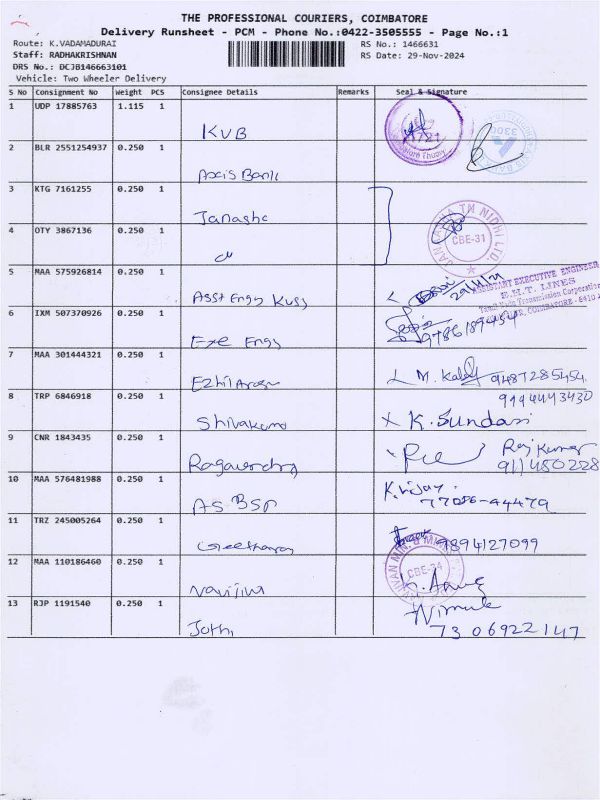 THE PROFESSIONAL COURIERS, COIMBATORE
Delivery Runsheet - PCM - Phone No.:0422-3505555 - Page No.:1
Route: K.VADAMADURAI RS No.: 1466631
Staff: RADHAKRISHNAN RS Date: 29-Nov-2024
DRS No.: DCJB146663101
Vehicle: Two Wheeler Delivery
S No Consignment No Weight PCS Consignee Details Remarks Seal & Signature
1 UDP 17885763 1.115 1 KVB
2 BLR 2551254937 0.250 1 Axis Bank
3 KTG 7161255 0.250 1 Janasha
4 OTY 3867136 0.250 1
CBE-31
5 MAA 575926814 0.250 1 Asst Engg
ASSISTANT EXECUTIVE ENGINEER
LINES
Tamil Nadu Transmission Corporation
COIMBATORE
6 IXM 507370926 0.250 1 Exe Engg
7 MAA 301444321 0.250 1 Ezhil M. 9487285454
9994443430
8 TRP 6846918 0.250 1 Shivakumar K. Sundari
9 CNR 1843435 0.250 1 Ragavendra Raj Kumar
10 MAA 576481988 0.250 1 AS BSP K. Vijay.
77086-44479
11 TRZ 245005264 0.250 1 9894127099
12 MAA 110186460 0.250 1
CBE-34
13 RJP 1191540 0.250 1 Jothi
7306922147